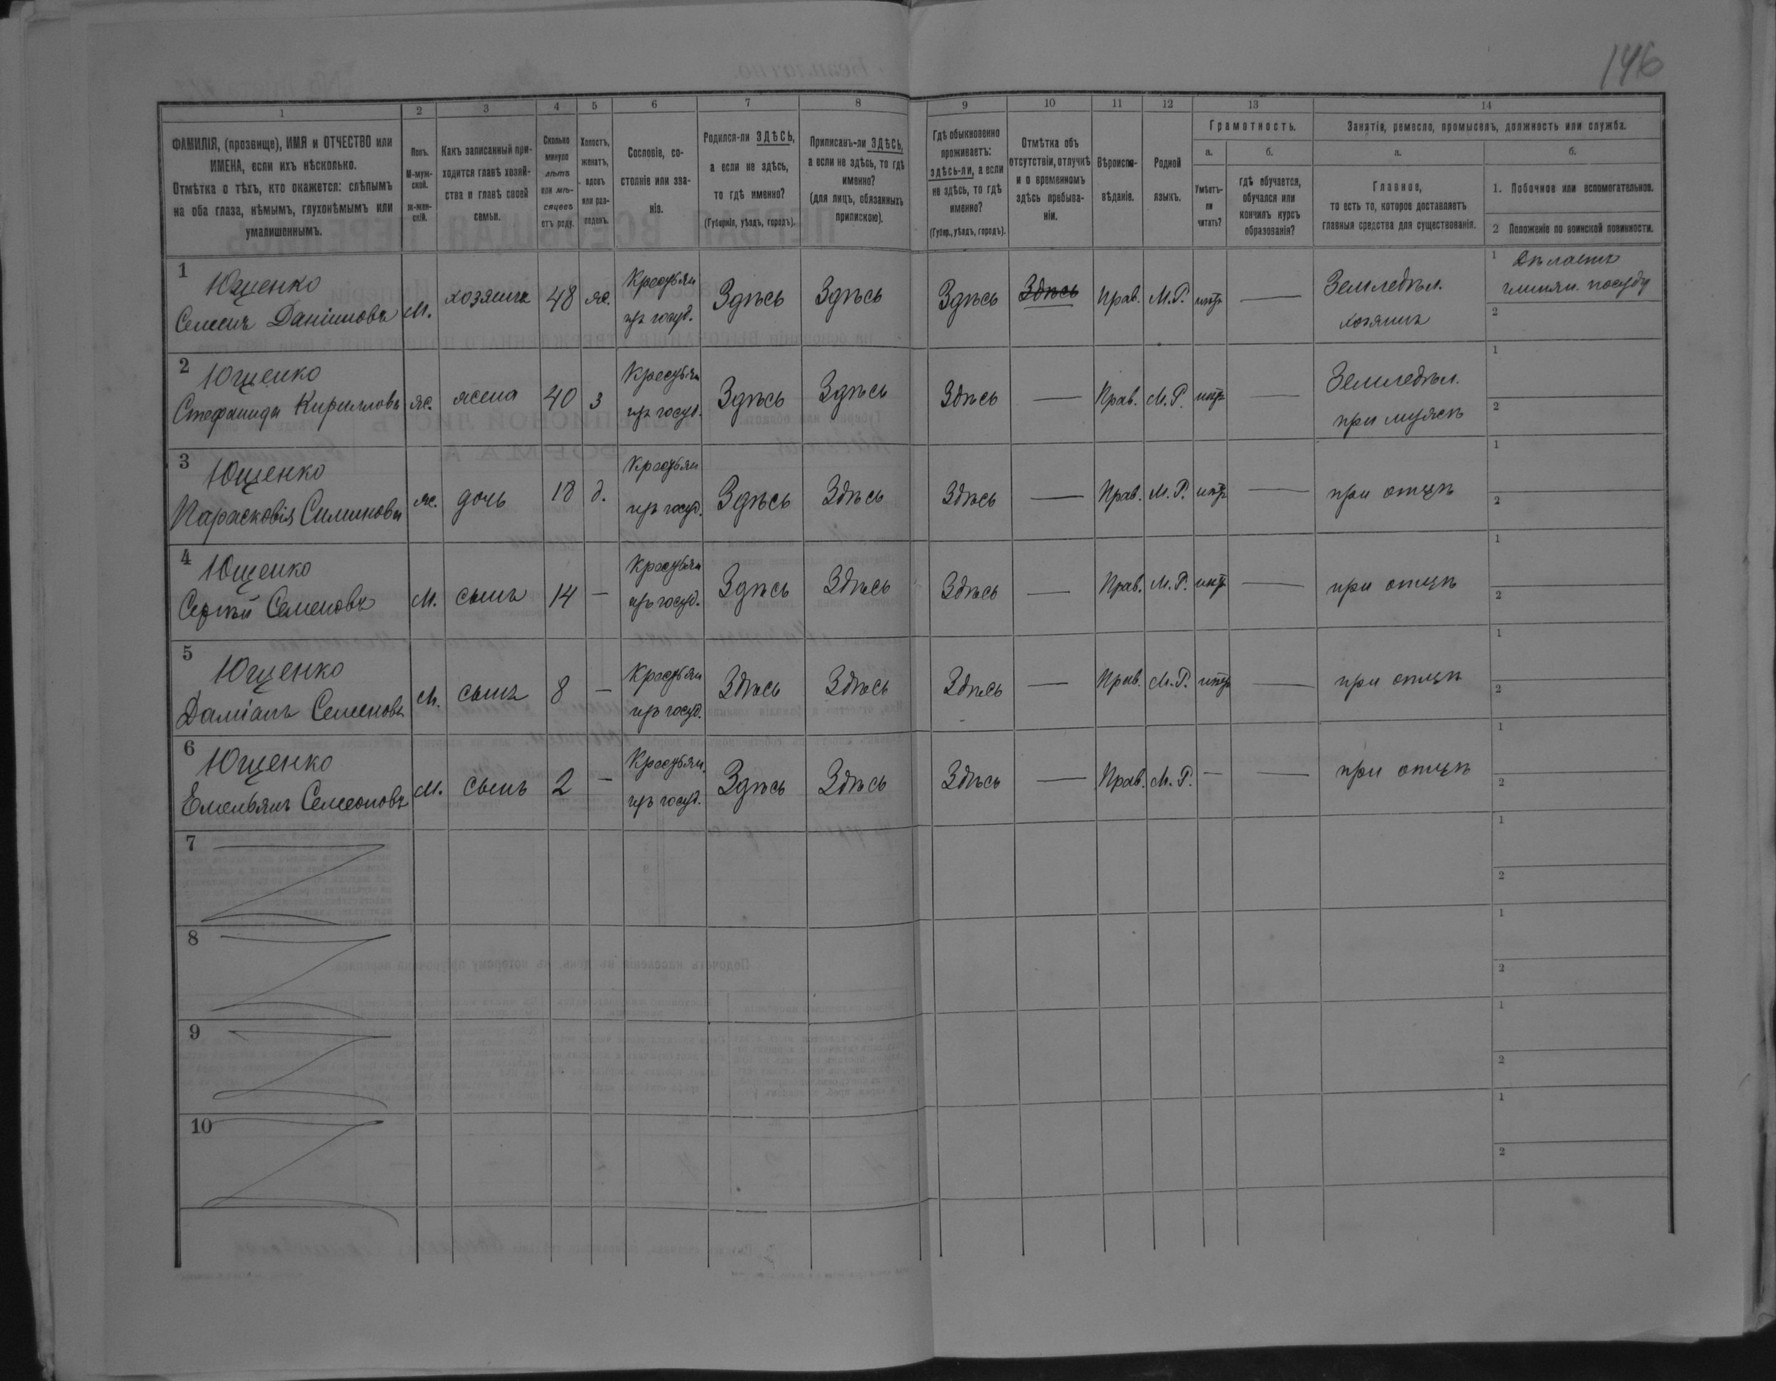 146
1
2
3
4
5
6
7
8
9
10
11
12
13
14
ФАМИЛІЯ, (прозвище), ИМЯ и ОТЧЕСТВО или
ИМЕНА, если ихъ нѣсколько.
Отмѣтка о тѣхъ, кто окажется: слѣпымъ
на оба глаза, нѣмымъ, глухонѣмымъ или
умалишеннымъ.
Полъ.
М-муж-
ской.
ж-жен-
скій.
Какъ записанный при-
ходится главѣ хозяй-
ства и главѣ своей
семьи.
Сколько
минуло
лѣтъ
или мѣ-
сяцевъ
отъ роду.
Холостъ,
женатъ,
вдовъ
или раз-
веденъ.
Сословіе, со-
стояніе или зва-
ніе.
Родился-ли ЗДѢСЬ,
а если не здѣсь,
то гдѣ именно?
(Губернія, уѣздъ, городъ).
Приписанъ-ли ЗДѢСЬ,
а если не здѣсь, то гдѣ
именно?
(для лицъ, обязанныхъ
припискою).
Гдѣ обыкновенно
проживаетъ:
здѣсь-ли, а если
не здѣсь, то гдѣ
именно?
(Губер., уѣздъ, городъ).
Отмѣтка объ
отсутствіи, отлучкѣ
и о временномъ
здѣсь пребыва-
ніи.
Вѣроиспо-
вѣданіе.
Родной
языкъ.
Грамотность.
а.
б.
Умѣетъ-
ли
читать?
гдѣ обучается,
обучался или
кончилъ курсъ
образованія?
Занятіе, ремесло, промыселъ, должность или служба.
а.
б.
Главное,
то есть то, которое доставляетъ
главныя средства для существованія.
1. Побочное или вспомогательное.
2 Положеніе по воинской повинности.
1
Ющенко
Семенъ Даніиловъ
М.
хозяинъ
48
ж.
Крестьян
изъ госуд.
Здѣсь
Здѣсь
Здѣсь
Здѣсь
Прав.
М.Р.
нѣтъ
—
Земледѣл.
хозяинъ
1 Дѣлаетъ
глинян. посуду
2
2
Ющенко
Стефанида Кириллова
ж.
жена
40
з
Крестьян
изъ госуд.
Здѣсь
Здѣсь
Здѣсь
—
Прав.
М.Р.
нѣтъ
—
Земледѣл.
при мужѣ
1
2
3
Ющенко
Парасковія Симинова
ж.
дочь
18
д.
Крестьян
изъ госуд.
Здѣсь
Здѣсь
Здѣсь
—
Прав.
М.Р.
нѣтъ
—
при отцѣ
1
2
4
Ющенко
Сергѣй Семеновъ
М.
сынъ
14
—
Крестьян
изъ госуд.
Здѣсь
Здѣсь
Здѣсь
—
Прав.
М.Р.
нѣтъ
—
при отцѣ
1
2
5
Ющенко
Даміанъ Семеновъ
М.
сынъ
8
—
Крестьян
изъ госуд.
Здѣсь
Здѣсь
Здѣсь
—
Прав.
М.Р.
нѣтъ
—
при отцѣ
1
2
6
Ющенко
Емельянъ Семеоновъ
М.
сынъ
2
—
Крестьян.
изъ госуд.
Здѣсь
Здѣсь
Здѣсь
—
Прав.
М.Р.
—
—
при отцѣ
1
2
7
1
2
8
1
2
9
1
2
10
1
2